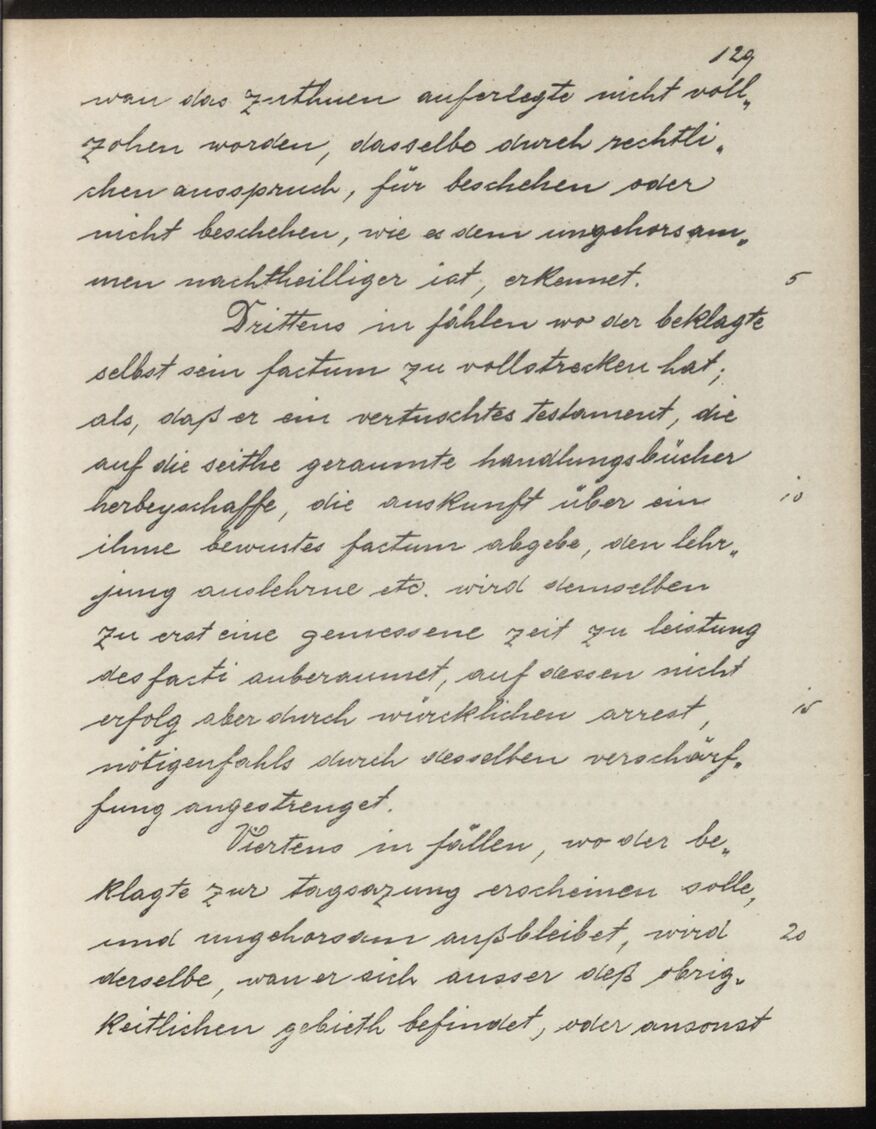 129
wan das zuthuen auferlegte nicht voll„
zohen worden, dasselbe durch rechtli„
chen ausspruch, für beschehen oder
nicht beschehen, wie es dem ungehorsam„
men nachtheilliger ist, erkennet. 5
Drittens in fählen wo der beklagte
selbst sein factum zu vollstrecken hat;
als, daß er ein vertuschtes testament, die
auf die seithe geraumte handlungsbücher
herbeyschaffe, die auskunft über ein 10
ihme bewustes factum abgebe, den lehr„
jung auslehrne etc. wird demselben
zu erst eine gemessene zeit zu leistung
des facti anberaumet, auf dessen nicht
erfolg aber durch würcklichen arrest, 15
nötigenfahls durch desselben verschärf„
fung angestrenget.
Viertens in fällen, wo der be„
klagte zur tagsazung erscheinen solle,
und ungehorsam außbleibet, wird 20
derselbe, wan er sich ausser deß obrig„
keitlichen gebieth befindet, oder ansonst